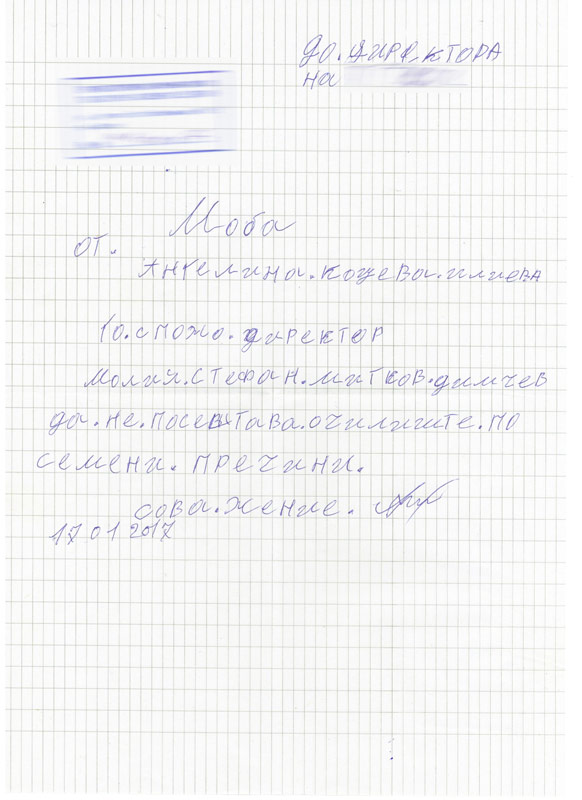 До. ДИРЕКТОРА
на
Моба
от.
Ангелина. Кощева. илиева
Го. спожо. директор
молия. Стефан. митков. димчев
да. не. посещтава. очилиште. по
семени. пречини.
сова. жение.
17 01 2017